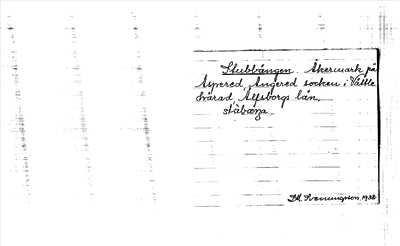 Stubbängen. Åkermark på
Aspered, Angered socken i Vättle
härad, Älfsborgs län.
stábæŋa.
D.A. Svenungson. 1932